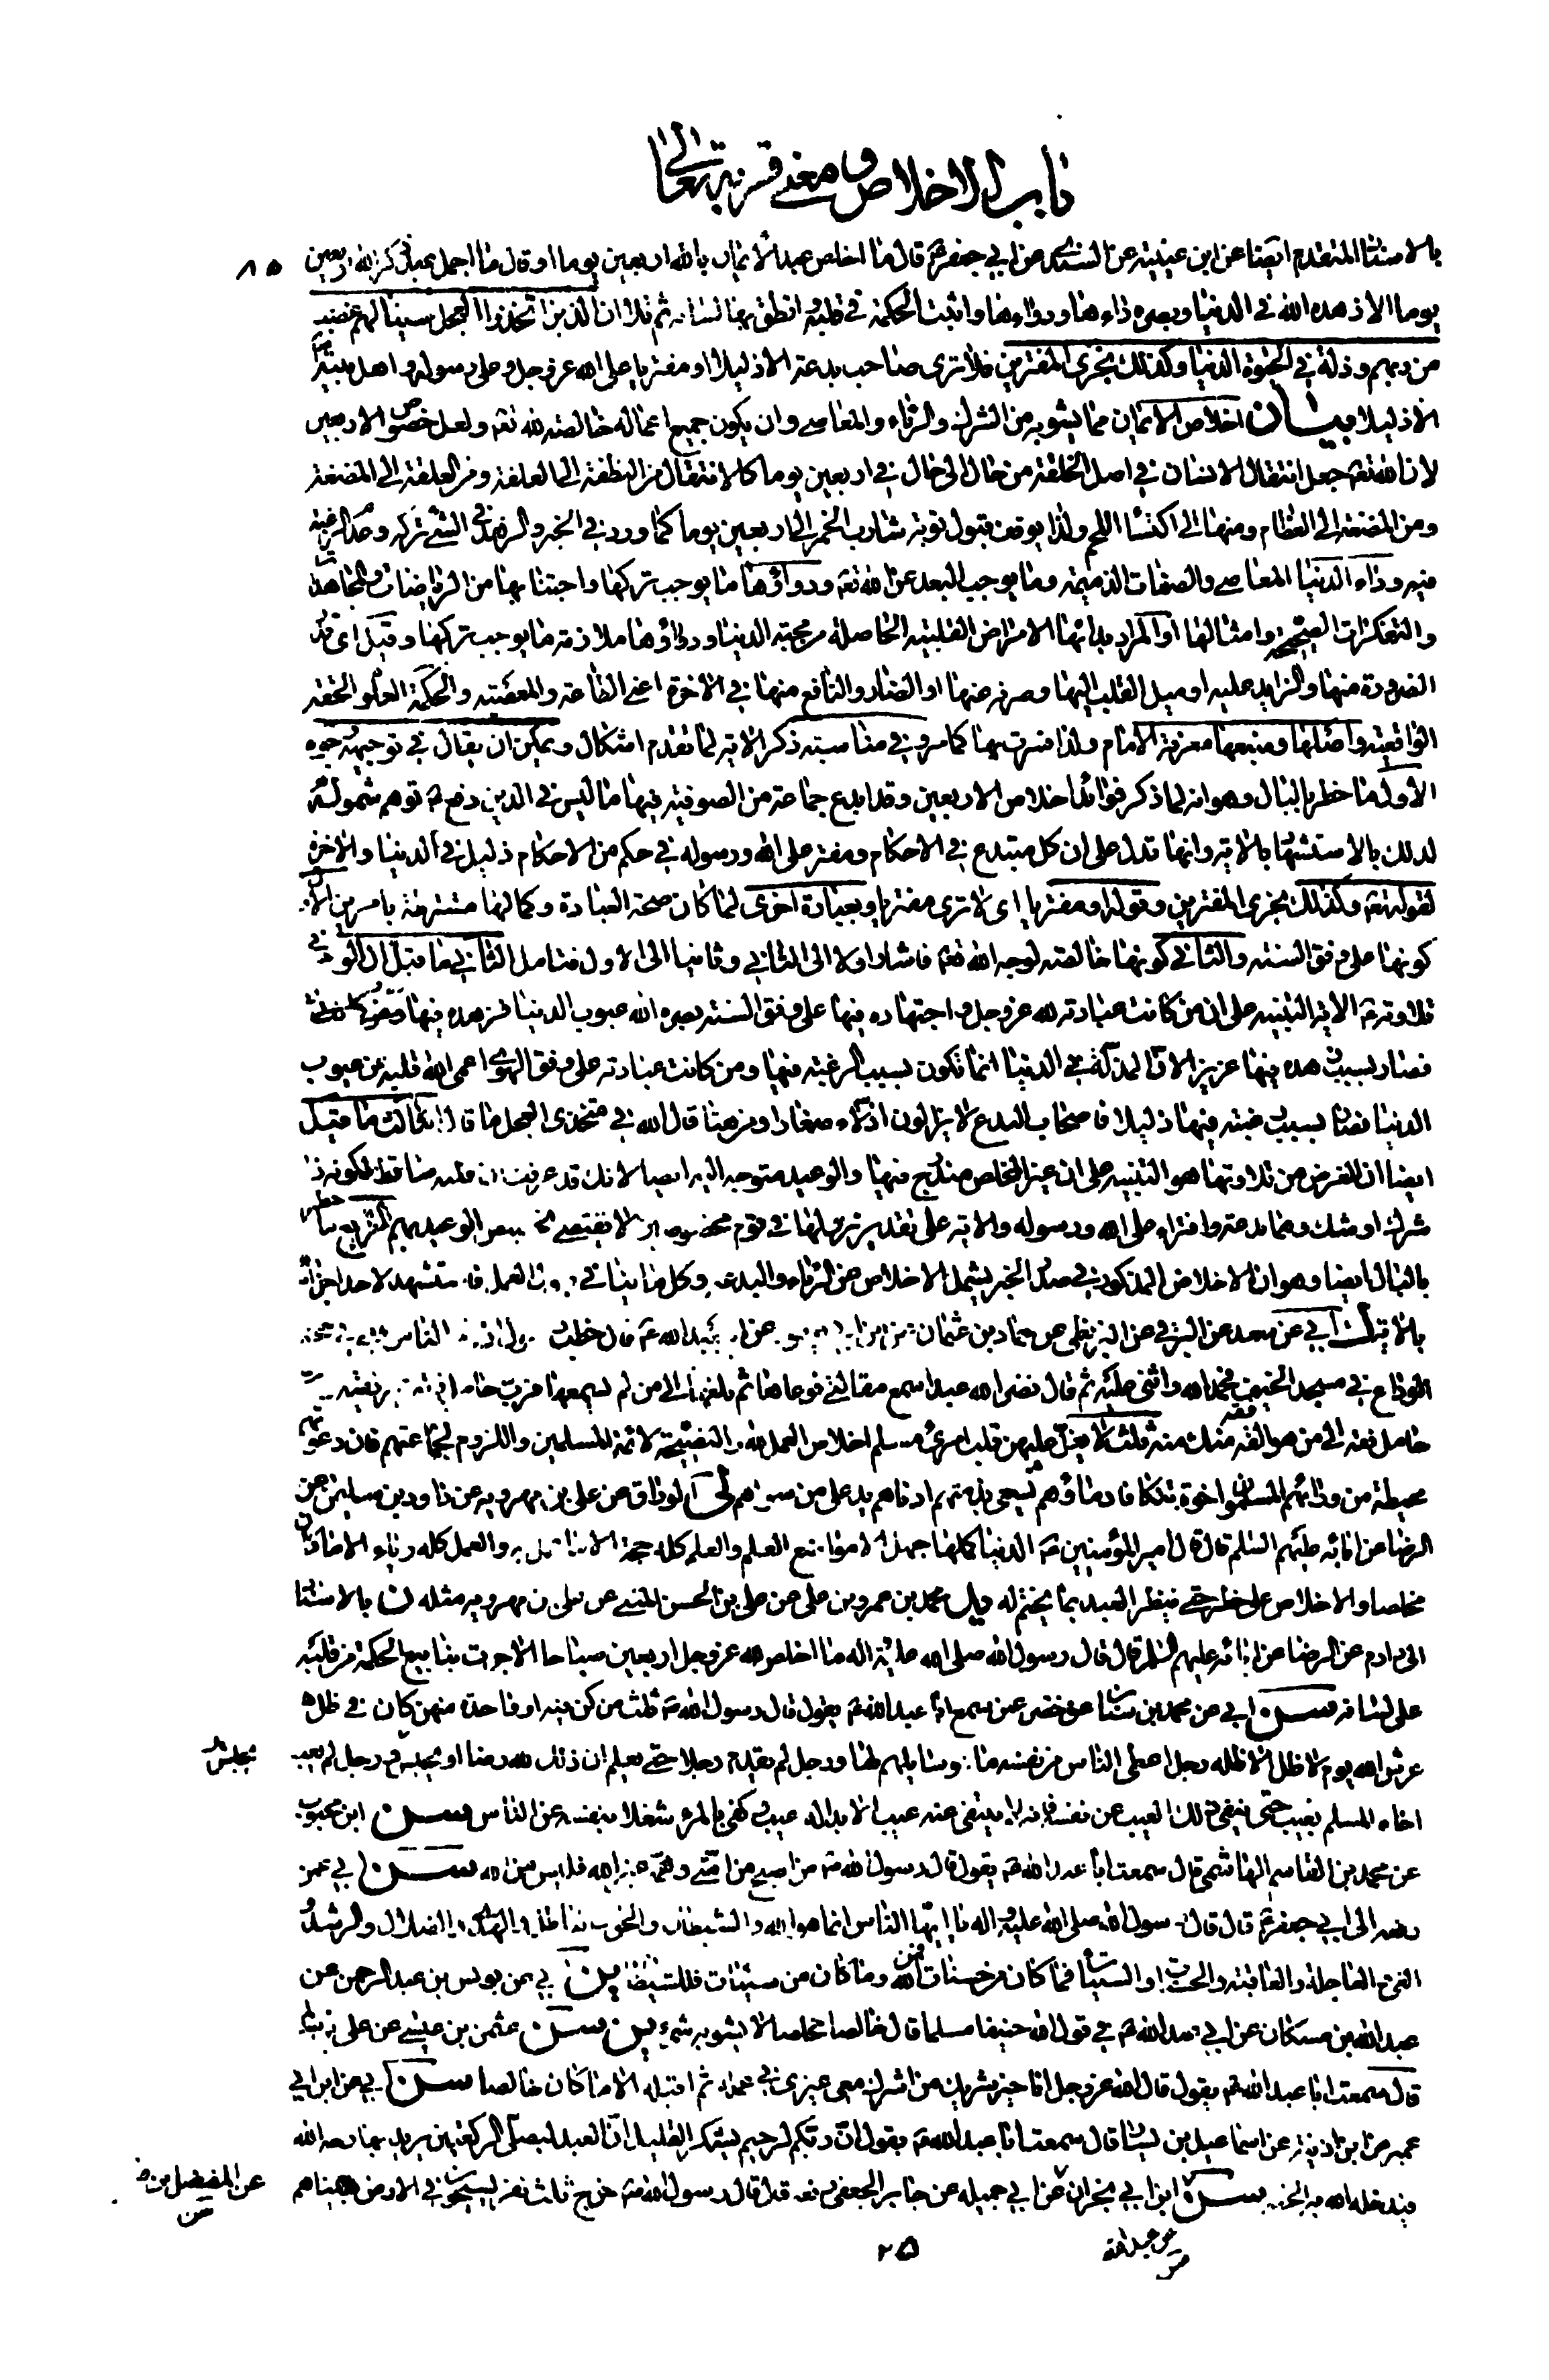 باب الاخلاص ومعنى قربه تعالى
٨٥
بالاسناد المتقدم ايضا عن ابن عيينة عن السندي عن ابي جعفر ع قال ما اخلص عبد الايمان بالله اربعين يوما او قال ما اجمل عبد ذكر الله اربعين
يوما الا زهده الله في الدنيا وبصره داءها ودواءها واثبت الحكمة في قلبه وانطق بها لسانه ثم تلا ان الذين اتخذوا العجل سينالهم غضب
من ربهم وذلة في الحيوة الدنيا وكذلك نجزى المفترين فلا ترى صاحب بدعة الا ذليلا او مفتريا على الله عز وجل وعلى رسوله واهل بيته
الا ذليلا بيان اخلاص الايمان مما يشوبه من الشرك والرياء والمعاصي وان يكون جميع اعماله خالصة لله تعه ولعل خصوص الاربعين
لان الله تعه جعل انتقال الانسان في اصل الخلقة من حال الى حال في اربعين يوما كالانتقال من النطفة الى العلقة ومن العلقة الى المضغة
ومن المضغة الى العظام ومنها الى اكتساء اللحم ولذا يوقف قبول توبة شارب الخمر الى اربعين يوما كما ورد في الخبر والزهد في الشئ تركه وعدم الرغبة
فيه وداء الدنيا المعاصي والصفات الذميمة وما يوجب البعد عن الله تعه ودواؤها ما يوجب تركها واجتنابها من الرياضات والمجاهدات
والتفكرات الصحيحة وامثالها او المراد بدائها الامراض القلبية الحاصلة من محبة الدنيا ودواؤها ملازمة ما يوجب تركها وقيل اى قدر
الضرورة منها والزايد عليه او ميل القلب اليها وصرفه عنها او الضار والنافع منها في الآخرة اعني الطاعة والمعصية والحكمة العلوم الحقة
الواقعية واصلها ومنبعها معرفة الامام ولذا فسرت بها كما مر وفي مناسبة ذكر الآية لما تقدم اشكال ويمكن ان يقال في توجيهه وجوه
الاول ما خطر بالبال وهو انه لما ذكر فوائد اخلاص الاربعين وقد ابدع جماعة من الصوفية فيها ما ليس في الدين دفع ع توهم شموله
لذلك بالاستشهاد بالاية وانها تدل على ان كل مبتدع في الاحكام ومفتر على الله ورسوله في حكم من الاحكام ذليل في الدنيا والاخرة
لقوله تعه وكذلك نجزى المفترين وقوله او مفتريا اى لا ترى مفتريا وبعبارة اخرى لما كان صحة العبادة وكمالها مشترطة بامرين الاول
كونها على وفق السنة والثاني كونها خالصة لوجه الله تعه فاشار اولا الى الثاني وثانيا الى الاول فتامل الثاني ما قيل ان الوجه في
تلاوته ع الاية التنبيه على ان من كانت عبادته لله عز وجل واجتهاده فيها على وفق السنة بصره الله عيوب الدنيا فزهده فيها
فصار بسبب زهده فيها عزيزا لان المذلة في الدنيا انما تكون بسبب الرغبة فيها ومن كانت عبادته على وفق الهوى اعمى الله قلبه عن عيوب
الدنيا فصار بسبب رغبته فيها ذليلا فاصحاب البدع لا يزالون اذلاء صغارا ومن هنا قال الله في متخذى العجل ما قال الثالث ما قيل
ايضا ان الغرض من تلاوتها هو التنبيه على ان غير المخلص مندرج فيها والوعيد متوجه اليه ايضا لانك قد عرفت ان قلبه ساقط لكونه ذا
شرك او شك وهما بدعة وافتراء على الله ورسوله والاية على تقدير نزولها في قوم مخصوصين لا يقتضي تخصيص الوعيد بهم الرابع ما خطر
بالبال ايضا وهو ان الاخلاص المذكور في صدر الخبر يشمل الاخلاص عن الرياء والبدعة وكل ما ينافي قبول العمل فاستشهد لاحد اجزائه
بالاية ل ابي عن سعد عن البرقي عن البزنطي عن حماد بن عثمان عن ابن ابي يعفور عن ابي عبد الله ع قال خطب رسول الله الناس في حجة
الوداع في مسجد الخيف فحمد الله واثنى عليه ثم قال نضر الله عبدا سمع مقالتي فوعاها ثم بلغها الى من لم يسمعها فرب حامل فقه غير فقيه ورب
حامل فقه الى من هو افقه منه ثلث لا يغل عليهن قلب امرئ مسلم اخلاص العمل لله والنصيحة لائمة المسلمين واللزوم لجماعتهم فان دعوتهم
محيطة من ورائهم المسلمون اخوة تتكافا دماؤهم يسعى بذمتهم ادناهم يد على من سواهم الوراق عن علي بن مهرويه عن داود بن سليمن عن
الرضا عن ابائه عليهم السلم قال قال امير المؤمنين ع الدنيا كلها جهل الا مواضع العلم والعلم كله حجة الا ما عمل به والعمل كله رياء الا ما كان
مخلصا والاخلاص على خطر حتى ينظر العبد بما يختم له يد محمد بن عمرو بن علي عن علي بن الحسن المثنى عن علي بن مهرويه مثله ن بالاسناد
الى دارم عن الرضا عن ابائه عليهم السلم قال قال رسول الله صلى الله عليه واله ما اخلص لله عز وجل اربعين صباحا الا جرت ينابيع الحكمة من قلبه
على لسانه سن ابي عن محمد بن سنان عن خضر عن سمع ابا عبد الله ع يقول قال رسول الله ص ثلث من كن فيه او واحدة منهن كان في ظل
عرش الله يوم لا ظل الا ظله رجل اعطى الناس من نفسه ما هو سايلهم لها ورجل لم يقدم رجلا حتى يعلم ان ذلك لله رضا او يحبس ورجل لم يعب
يحبس
اخاه المسلم بعيب حتى ينفي ذلك العيب عن نفسه فانه لا ينتفى عنه عيب الا بدا له عيب وكفى بالمرء شغلا بنفسه عن الناس سن ابن محبوب
عن محمد بن القاسم الهاشمي قال سمعت ابا عبد الله ع يقول قال رسول الله ص من اصبح من امتي وهمه غير الله فليس من الله سن ابي عمن
رفعه الى ابي جعفر ع قال قال رسول الله صلى الله عليه واله يا ايها الناس انما هو الله والشيطان والحق والباطل والهدى والضلال والرشد
الغي والعاجلة والعاقبة والحسنات والسيئات فما كان من حسنات فلله وما كان من سيئات فللشيطان سن ابي عن يونس بن عبد الرحمن عن
عبد الله بن مسكان عن ابي عبد الله ع في قول الله حنيفا مسلما قال خالصا مخلصا لا يشوبه شئ سن عثمن بن عيسى عن علي بن سالم
قال سمعت ابا عبد الله ع يقول قال الله عز وجل انا خير شريك من اشرك معي غيرى في عمله لم اقبله الا ما كان خالصا سن ابي عن ابن ابي
عمير عن ابن اذينة عن اسماعيل بن يسار قال سمعت ابا عبد الله ع يقول ان ربكم لرحيم يشكر القليل ان العبد ليصلي الركعتين يريد بها وجه الله
فيدخله الله به الجنة سن ابن ابي نجران عن ابي جميلة عن جابر الجعفي رفعه قال قال رسول الله ص خرج ثلث نفر يسيحون في الارض فبيناهم
عن المفضل بن ص
عن عبد الله
٢٥